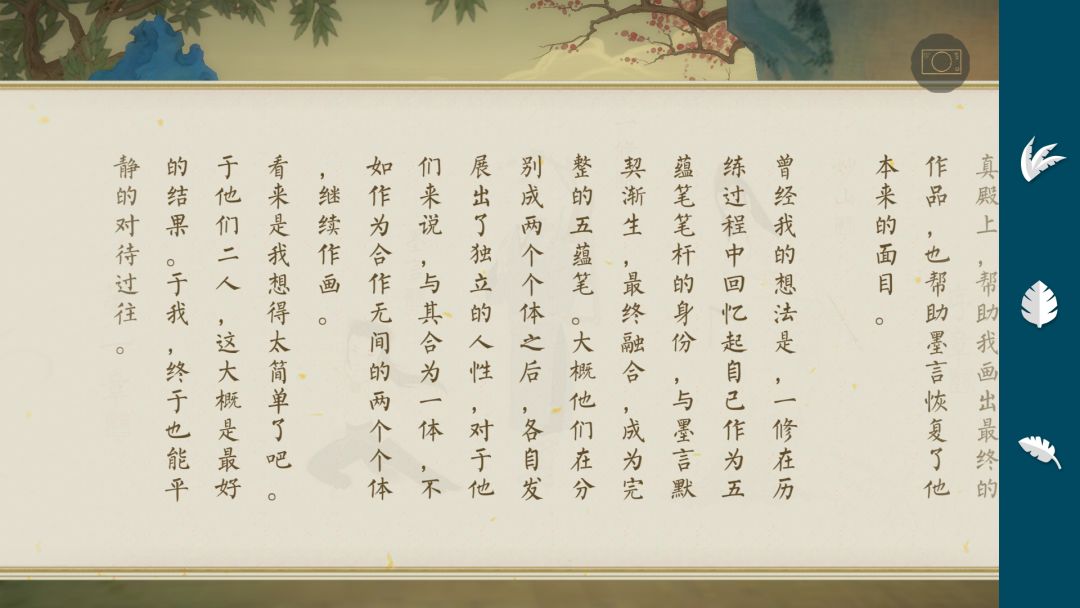 真殿上，帮助我画出最终的
作品，也帮助墨言恢复了他
本来的面目。
曾经我的想法是，一修在历
练过程中回忆起自己作为五
蕴笔笔杆的身份，与墨言默
契渐生，最终融合，成为完
整的五蕴笔。大概他们在分
别成两个个体之后，各自发
展出了独立的人性，对于他
们来说，与其合为一体，不
如作为合作无间的两个个体
，继续作画。
看来是我想得太简单了吧。
于他们二人，这大概是最好
的结果。于我，终于也能平
静的对待过往。